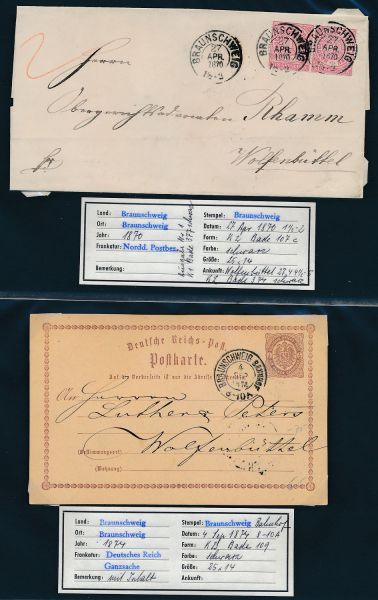 BRAUNSCHWEIG 27 APR. 1870 1½-2
BRAUNSCHWEIG 27 APR. 1870
BRAUNSCHWEIG 27 APR. 1870
Herrn
Obergerichtsadvocaten Rhamm
Wolfenbüttel
fr.
Land: Braunschweig
Ort: Braunschweig
Jahr: 1870
Frankatur: Nordd. Postbez.
Bemerkung:
Stempel: Braunschweig
Datum: 27 Apr 1870 1½-2
Form: K2 Bade 107c
Farbe: schwarz
Größe: 25 ∅ 14
Ankunft: Wolfenbüttel 27,4
K2 Bade 374 schwarz
Deutsche Reichs-Post
Postkarte.
Auf der Vorderseite ist nur die Adresse
BRAUNSCHWEIG BAHNHOF 4 1874 8-10A
An Herrn
Luther & Peters
(Bestimmungsort) Wolfenbüttel
(Wohnung)
Land: Braunschweig
Ort: Braunschweig
Jahr: 1874
Frankatur: Deutsches Reich
Ganzsache
Bemerkung: mit Inhalt
Stempel: Braunschweig Bahnhof
Datum: 4 Sep 1874 8-10A
Form: K2 Bade 109
Farbe: schwarz
Größe: 25 ∅ 14
Ankunft: